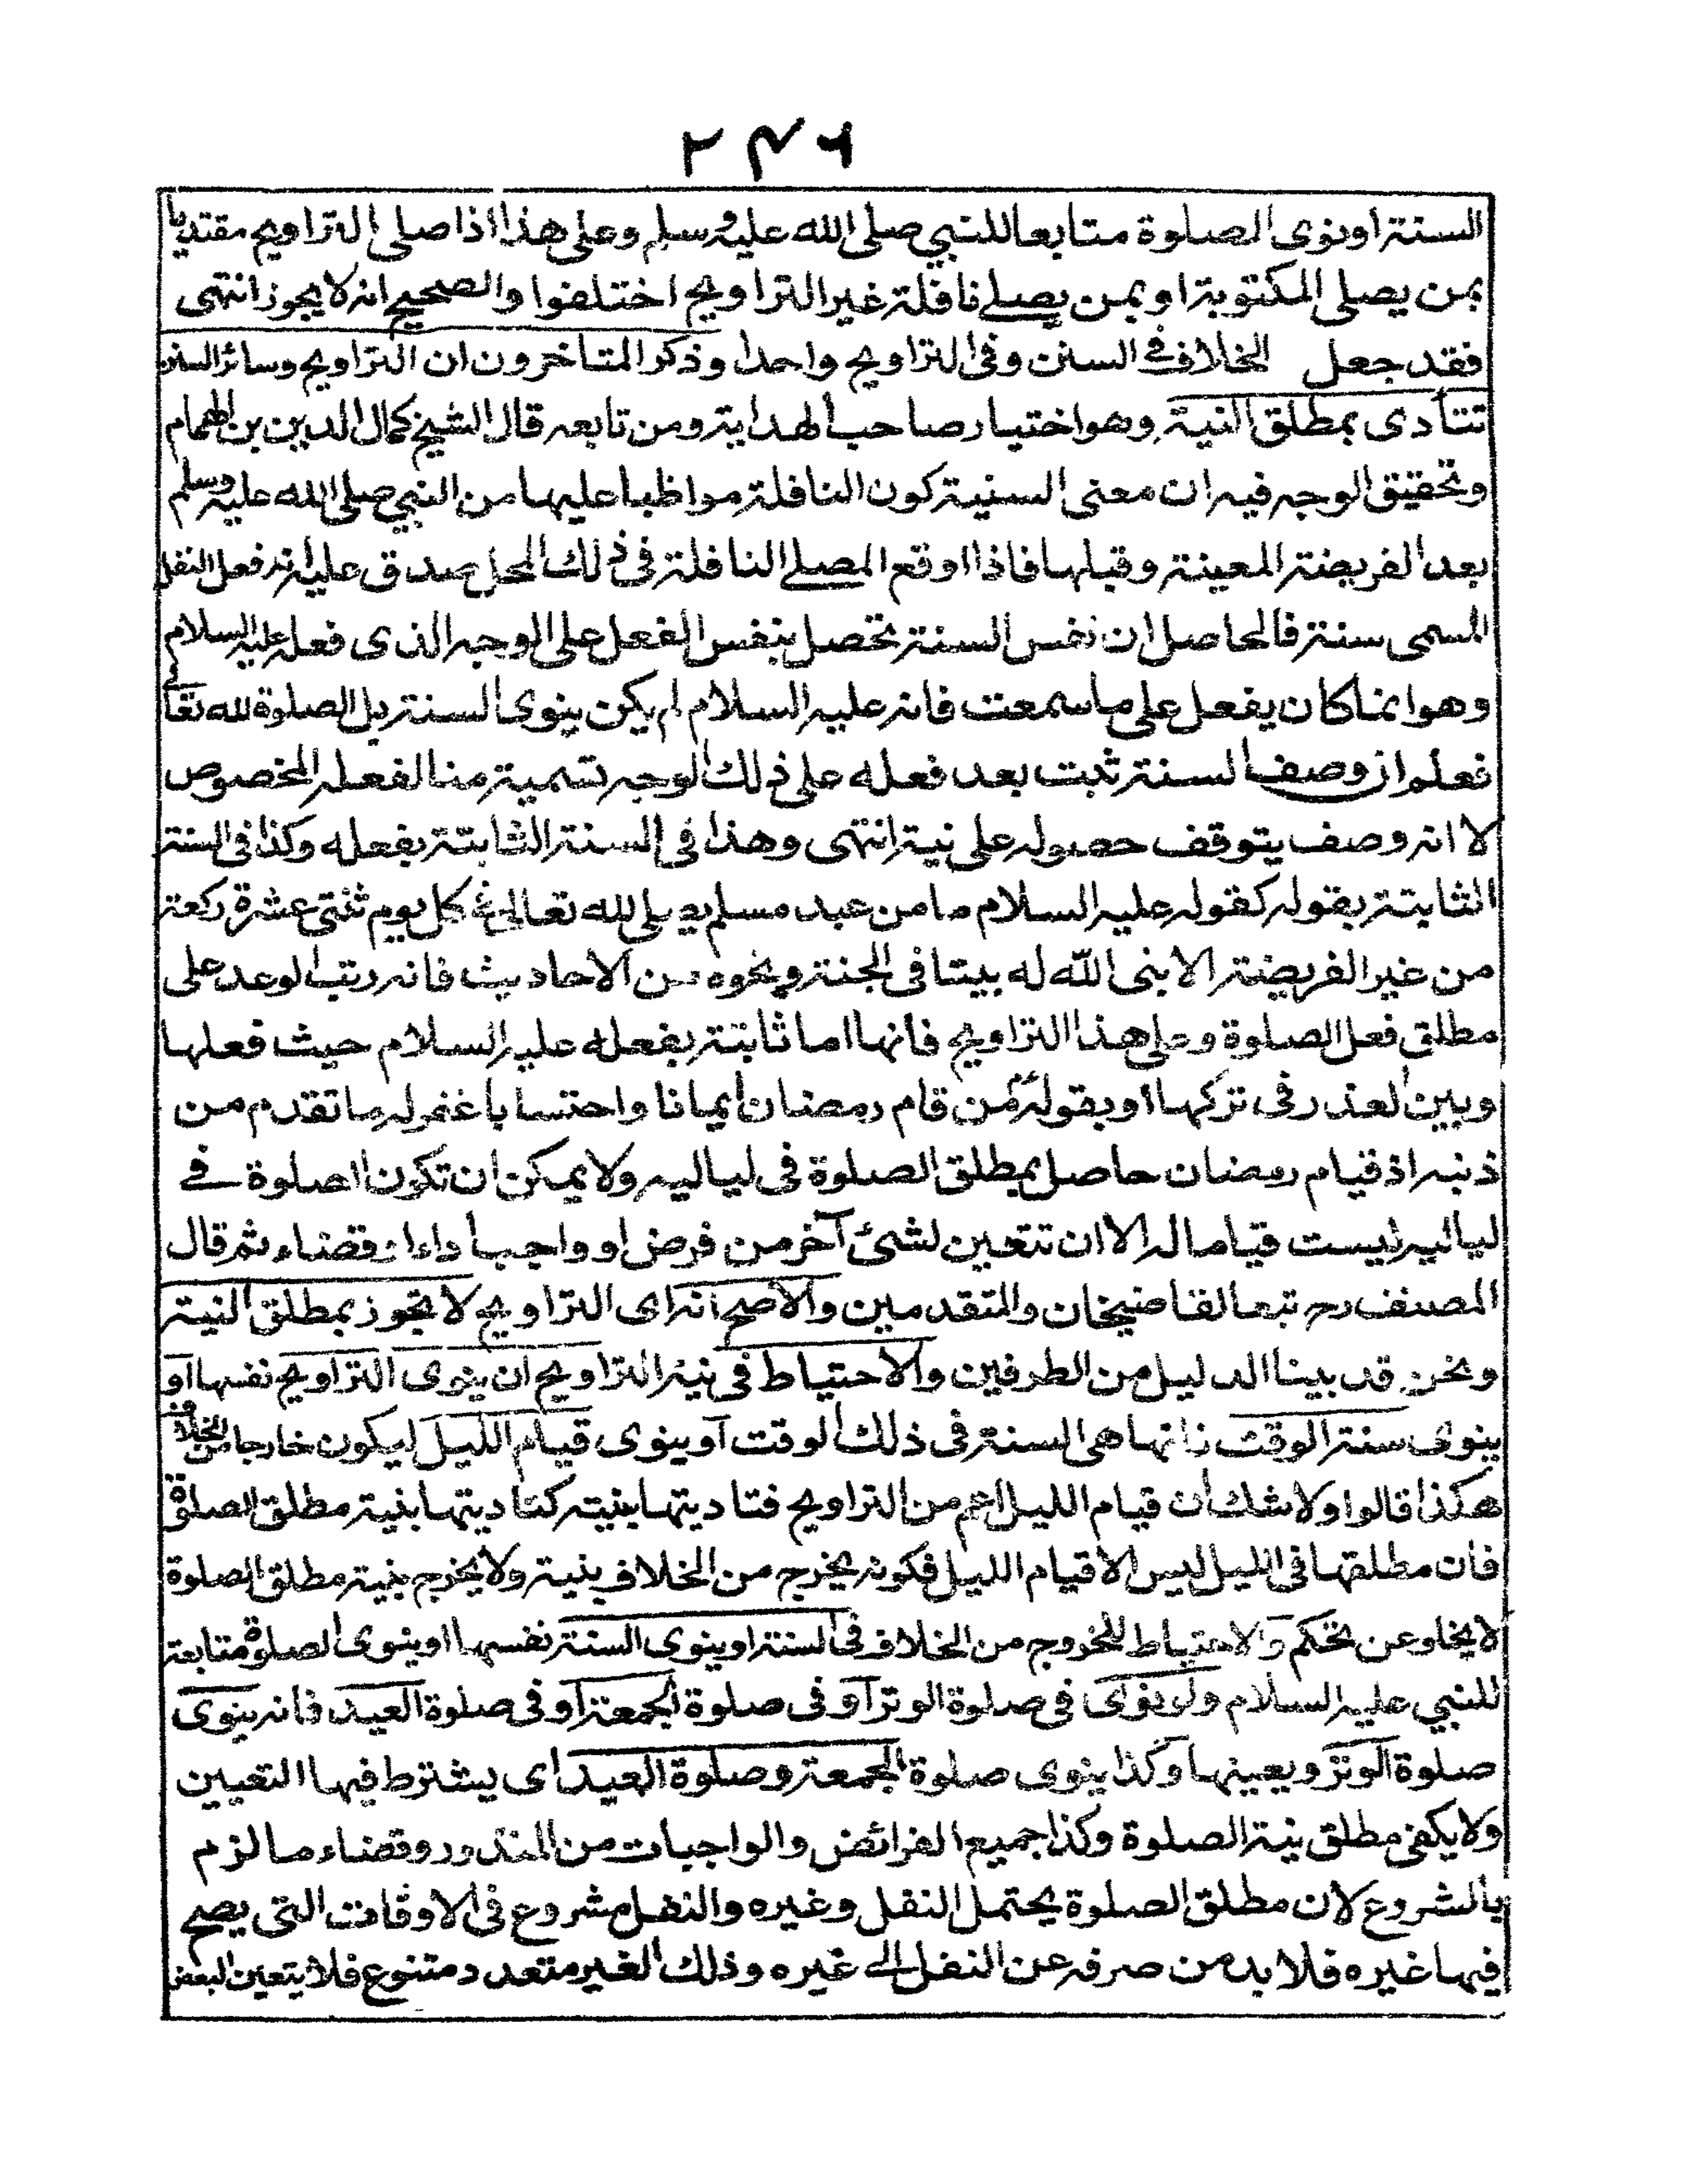 ٢٤٦
السنة او نوى الصلوة متابعا للنبي صلى الله عليه وسلم وعلى هذا اذا صلى التراويح مقتديا
بمن يصلى المكتوبة او بمن يصلے نافلة غير التراويح اختلفوا والصحيح انه لا يجوز انتهى
فقد جعل الخلاف فے السنن وفى التراويح واحدا وذكر المتاخرون ان التراويح وسائر السنن
تتأدى بمطلق النية وهو اختيار صاحب الهداية ومن تابعه قال الشيخ كمال الدين بن الهمام
وتحقيق الوجه فيه ان معنى السنية كون النافلة مواظبا عليها من النبي صلى الله عليه وسلم
بعد الفريضة المعينة وقبلها فاذا اوقع المصلے النافلة فى ذلك المحل صدق عليه انه فعل النفل
المسمى سنة فالحاصل ان نفس السنة تحصل بنفس الفعل على الوجه الذى فعله عليه السلام
وهو انما كان يفعل على ما سمعت فانه عليه السلام لم يكن ينوى السنة بل الصلوة لله تعالى
فعلم ان وصف السنة ثبت بعد فعله على ذلك الوجه تسمية منا لفعله المخصوص
لا انه وصف يتوقف حصوله على نية انتهى وهذا فى السنة الثابتة بفعله وكذا فى السنة
الثابتة بقوله كقوله عليه السلام ما من عبد مسلم يصلى لله تعالى فے كل يوم ثنتى عشرة ركعة
من غير الفريضة الا بنى الله له بيتا فى الجنة ونحوه من الاحاديث فانه رتب الوعد على
مطلق فعل الصلوة وعلى هذا التراويح فانها اما ثابتة بفعله عليه السلام حيث فعلها
وبين العذر فى تركها او بقوله من قام رمضان ايمانا واحتسابا غفر له ما تقدم من
ذنبه اذ قيام رمضان حاصل بمطلق الصلوة فى لياليه ولا يمكن ان تكون الصلوة فے
لياليه ليست قياما له الا ان تتعين لشئ آخر من فرض او واجب اداء او قضاء ثم قال
المصنف رح تبعا لقاضيخان والمتقدمين والاصح انه اى التراويح لا تجوز بمطلق النية
ونحن قد بينا الدليل من الطرفين والاحتياط فى نية التراويح ان ينوى التراويح نفسها او
ينوى سنة الوقت فانها هى السنة فى ذلك الوقت او ينوى قيام الليل ليكون خارجا من الخلاف
هكذا قالوا ولا شك ان قيام الليل اعم من التراويح فتاديتها بنيته كتاديتها بنية مطلق الصلوة
فان مطلقها فى الليل ليس الا قيام الليل فكونه يخرج من الخلاف بنية ولا يخرج بنية مطلق الصلوة
لا يخلو عن تحكم والاحتياط للخروج من الخلاف فى السنة او ينوى السنة نفسها او ينوى الصلوة متابعة
للنبي عليه السلام ولو نوى فى صلوة الوتر او فى صلوة الجمعة او فى صلوة العيد فانه ينوى
صلوة الوتر ويعينها وكذا ينوى صلوة الجمعة وصلوة العيد اى يشترط فيها التعيين
ولا يكفى مطلق نية الصلوة وكذا جميع الفرائض والواجبات من المنذور وقضاء ما لزم
بالشروع لان مطلق الصلوة يحتمل النفل وغيره والنفل مشروع فى الاوقات التى يصح
فيها غيره فلا بد من صرفه عن النفل الى غيره وذلك الغير متعدد متنوع فلا يتعين البعض